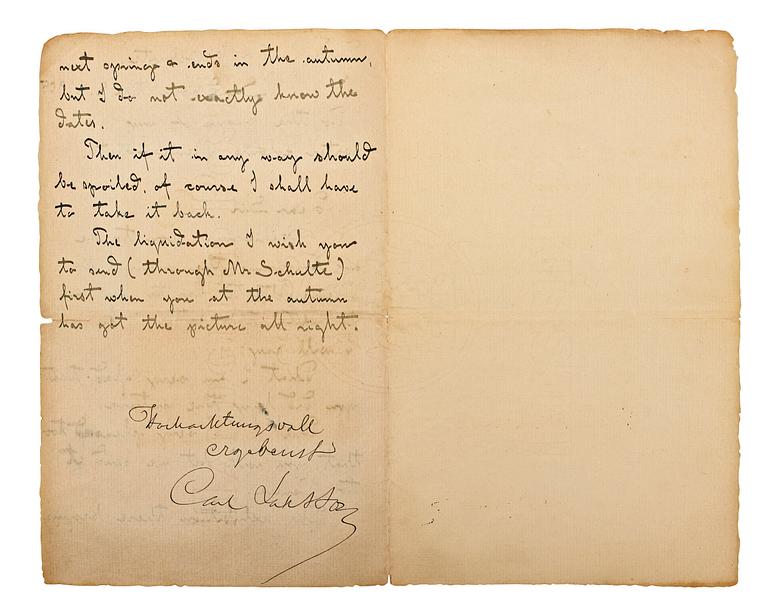 next spring & ends in the autumn,
but I do not exactly know the
dates.
Then if it in any way should
be spoiled, of course I shall have
to take it back.
The liquidation I wish you
to send (through Mr Schulte)
first when you at the autumn
has got the picture all right.
Hochachtungsvoll
ergebenst
Carl Larsson